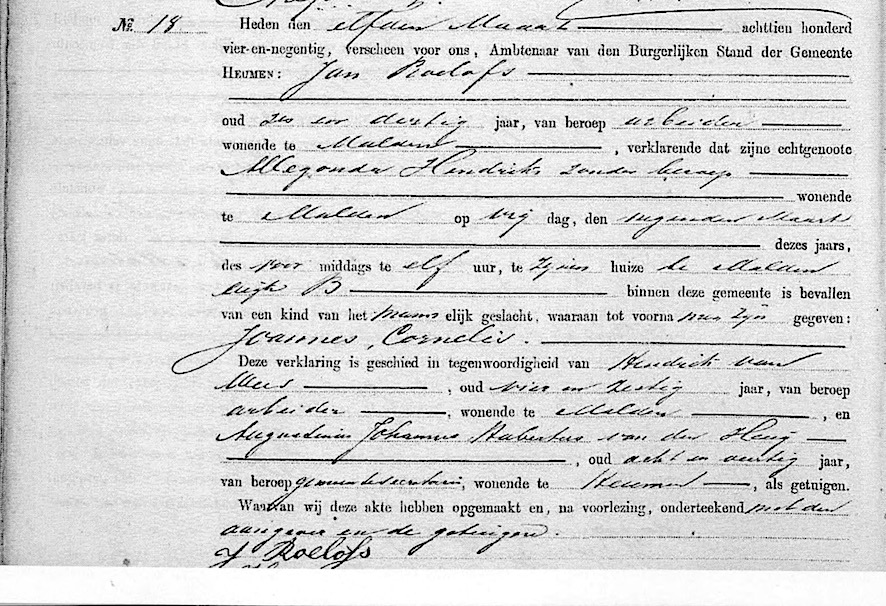 No. 18 Heden den elfden Maart achttien honderd
vier-en-negentig, verscheen voor ons, Ambtenaar van den Burgerlijken Stand der Gemeente
HEUMEN: Jan Roelofs
oud zes en dertig jaar, van beroep arbeider
wonende te Malden, verklarende dat zijne echtgenoote
Allegonda Hendriks zonder beroep
wonende
te Malden op vrij dag, den negenden Maart
dezes jaars,
des voor middags te elf uur, te zijnen huize te Malden
wijk B binnen deze gemeente is bevallen
van een kind van het mann elijk geslacht, waaraan tot voorna men zijn gegeven:
Joannes, Cornelis.
Deze verklaring is geschied in tegenwoordigheid van Hendrik van
, oud vier en zestig jaar, van beroep
arbeider, wonende te Malden, en
Augustinus Johannes Hubertus van der
, oud acht en veertig jaar,
van beroep gemeentesecretaris, wonende te Heumen, als getuigen.
Waarvan wij deze akte hebben opgemaakt en, na voorlezing, onderteekend met den
aangever en de getuigen.
J Roelofs